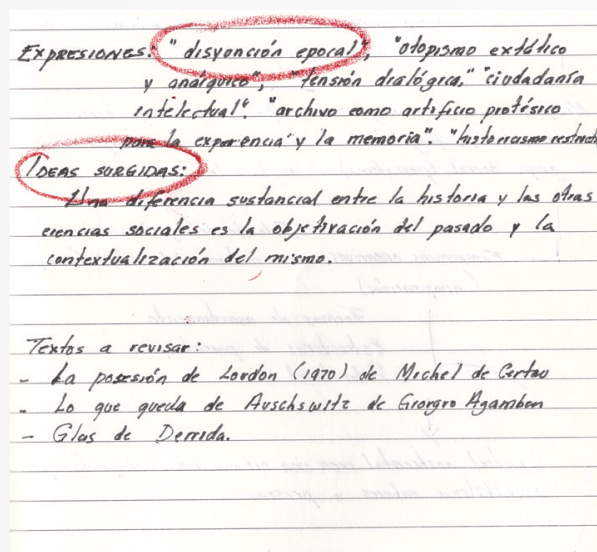 EXPRESIONES: "disyonción epocal", "otopismo extático
y anárquico", "tensión dialógica," "ciudadanía
intelectual". "archivo como artificio protésico
para la experencia" y la memoria". "historicismo
IDEAS SURGIDAS:
Una diferencia sustancial entre la historia y las otras
ciencias sociales es la objetivación del pasado y la
contextualización del mismo.
Textos a revisar:
- La posesión de Lordon (1970) de Michel de Certau
- Lo que queda de Auschswitz de Giorgio Agamben
- Glas de Derrida.